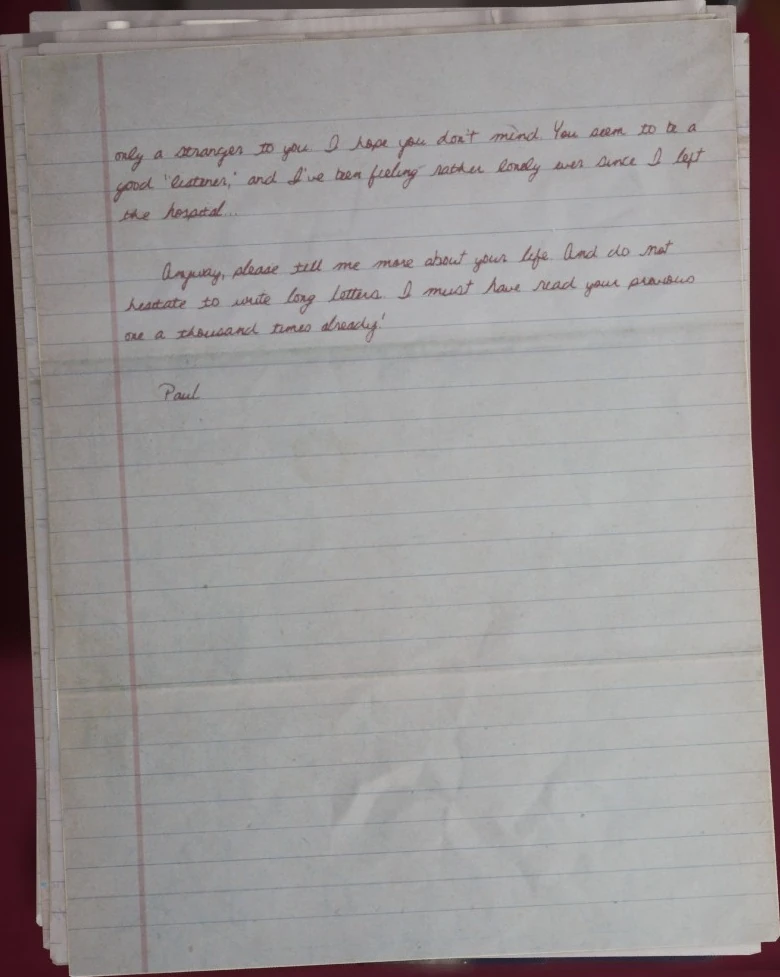 only a stranger to you. I hope you don't mind. You seem to be a
good "listener," and I've been feeling rather lonely ever since I left
the hospital...
Anyway, please tell me more about your life. And do not
hesitate to write long letters. I must have read your previous
one a thousand times already!
Paul